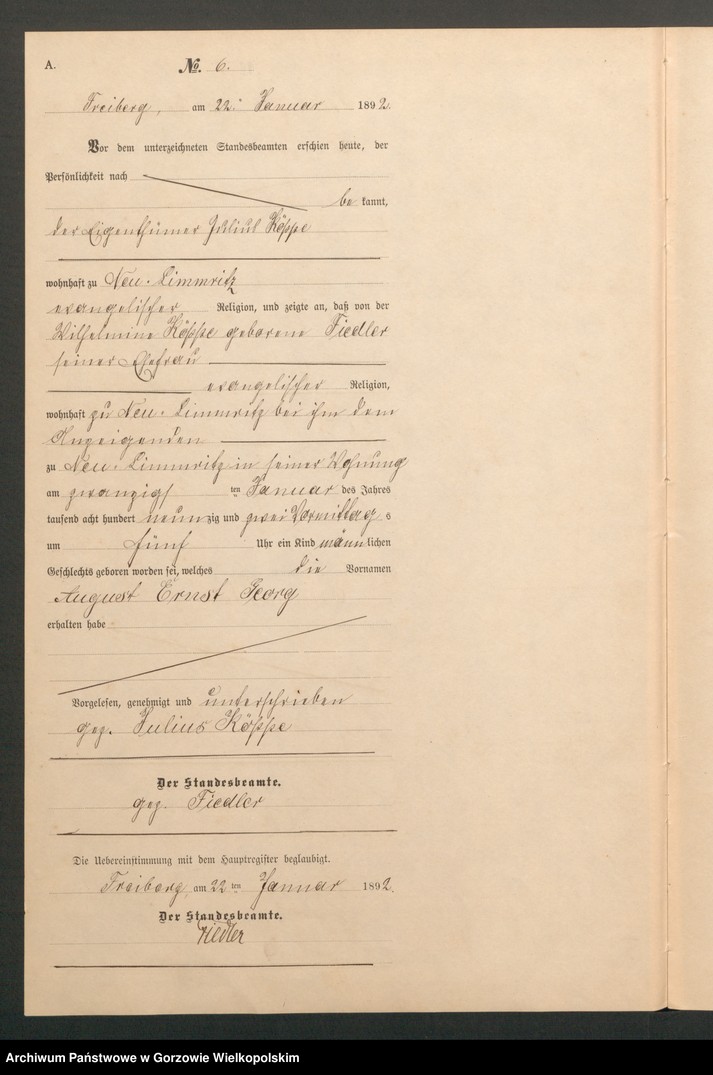 A.
No. 6.
Freiberg, am 22. Januar 1892.
Vor dem unterzeichneten Standesbeamten erschien heute, der
Persönlichkeit nach
be kannt,
der Eigenthümer Julius Köppe
wohnhaft zu Neu-Limmritz
evangelischer Religion, und zeigte an, daß von der
Wilhelmine Köppe geborene Fiedler
seiner Ehefrau
evangelischer Religion,
wohnhaft zu Neu-Limmritz bei ihm dem
Anzeigenden
zu Neu-Limmritz in seiner Wohnung
am zwanzigs ten Januar des Jahres
tausend acht hundert neunzig und zwei Vormittags
um fünf Uhr ein Kind männlichen
Geschlechts geboren worden sei, welches die Vornamen
August Ernst Georg
erhalten habe
Vorgelesen, genehmigt und unterschrieben
gez. Julius Köppe
Der Standesbeamte.
gez. Fiedler
Die Uebereinstimmung mit dem Hauptregister beglaubigt.
Freiberg, am 22 ten Januar 1892.
Der Standesbeamte.
Fiedler
Archiwum Państwowe w Gorzowie Wielkopolskim